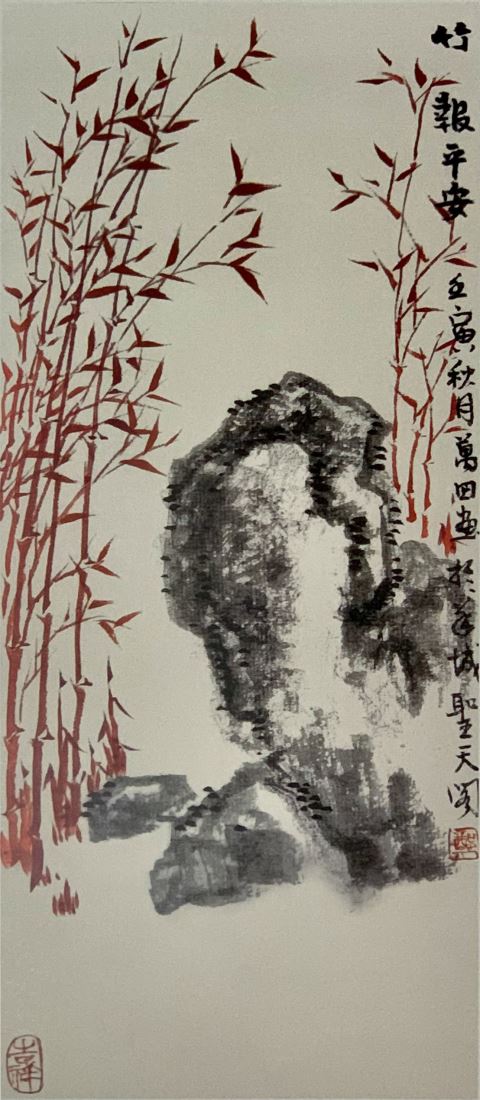 竹報平安
壬寅秋月萬田畫於羊城聖天閣
吉祥